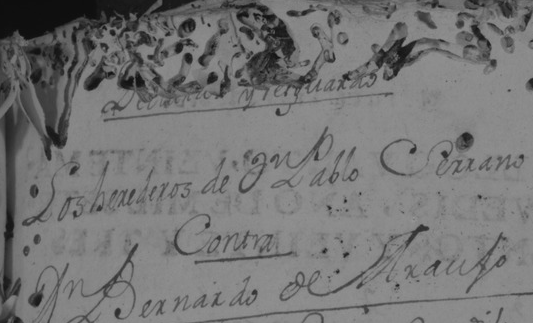 y resguardo
Los herederos de Dn Pablo Serrano
Contra
Dn Bernardo de Araujo